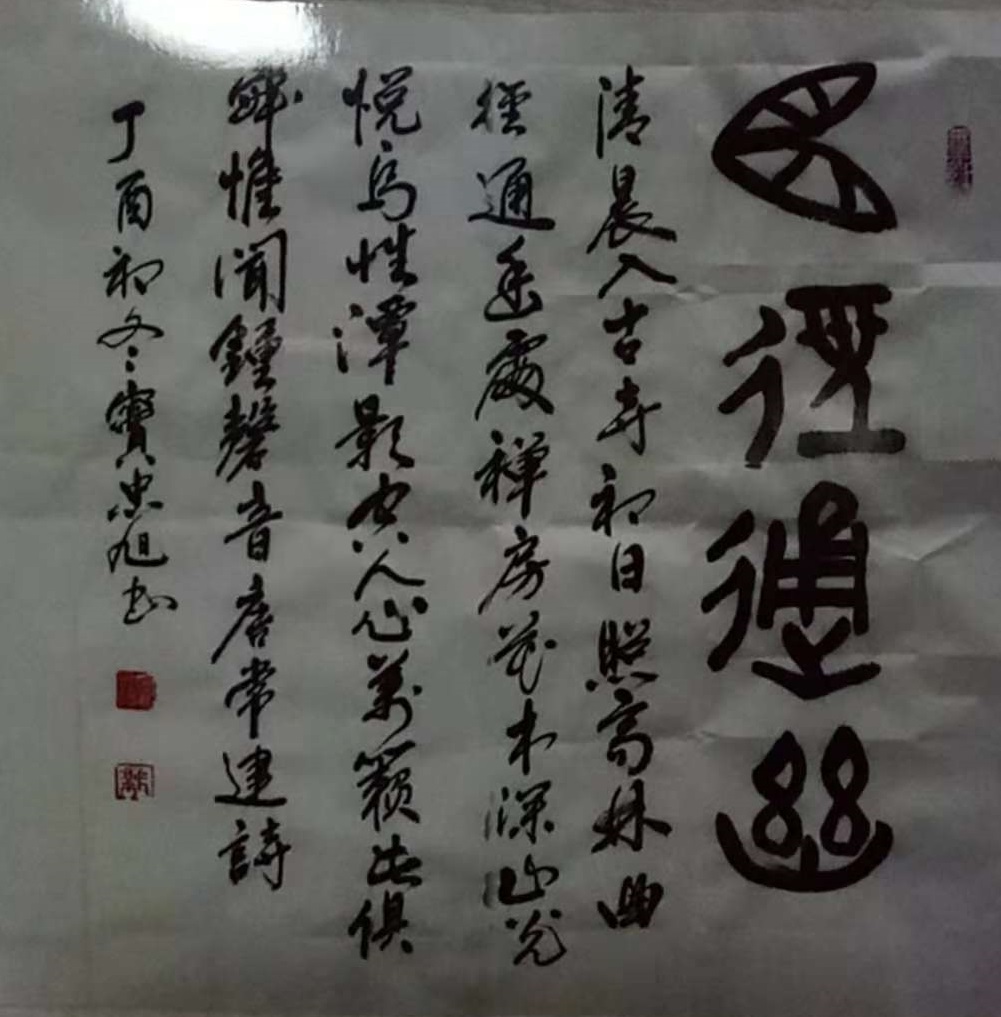 曲徑通幽
清晨入古寺初日照高林曲
徑通幽處禅房花木深山光
悦鳥性潭影空人心萬籟此俱
寂惟聞鍾磬音唐常建詩
丁酉初冬竇忠旭书